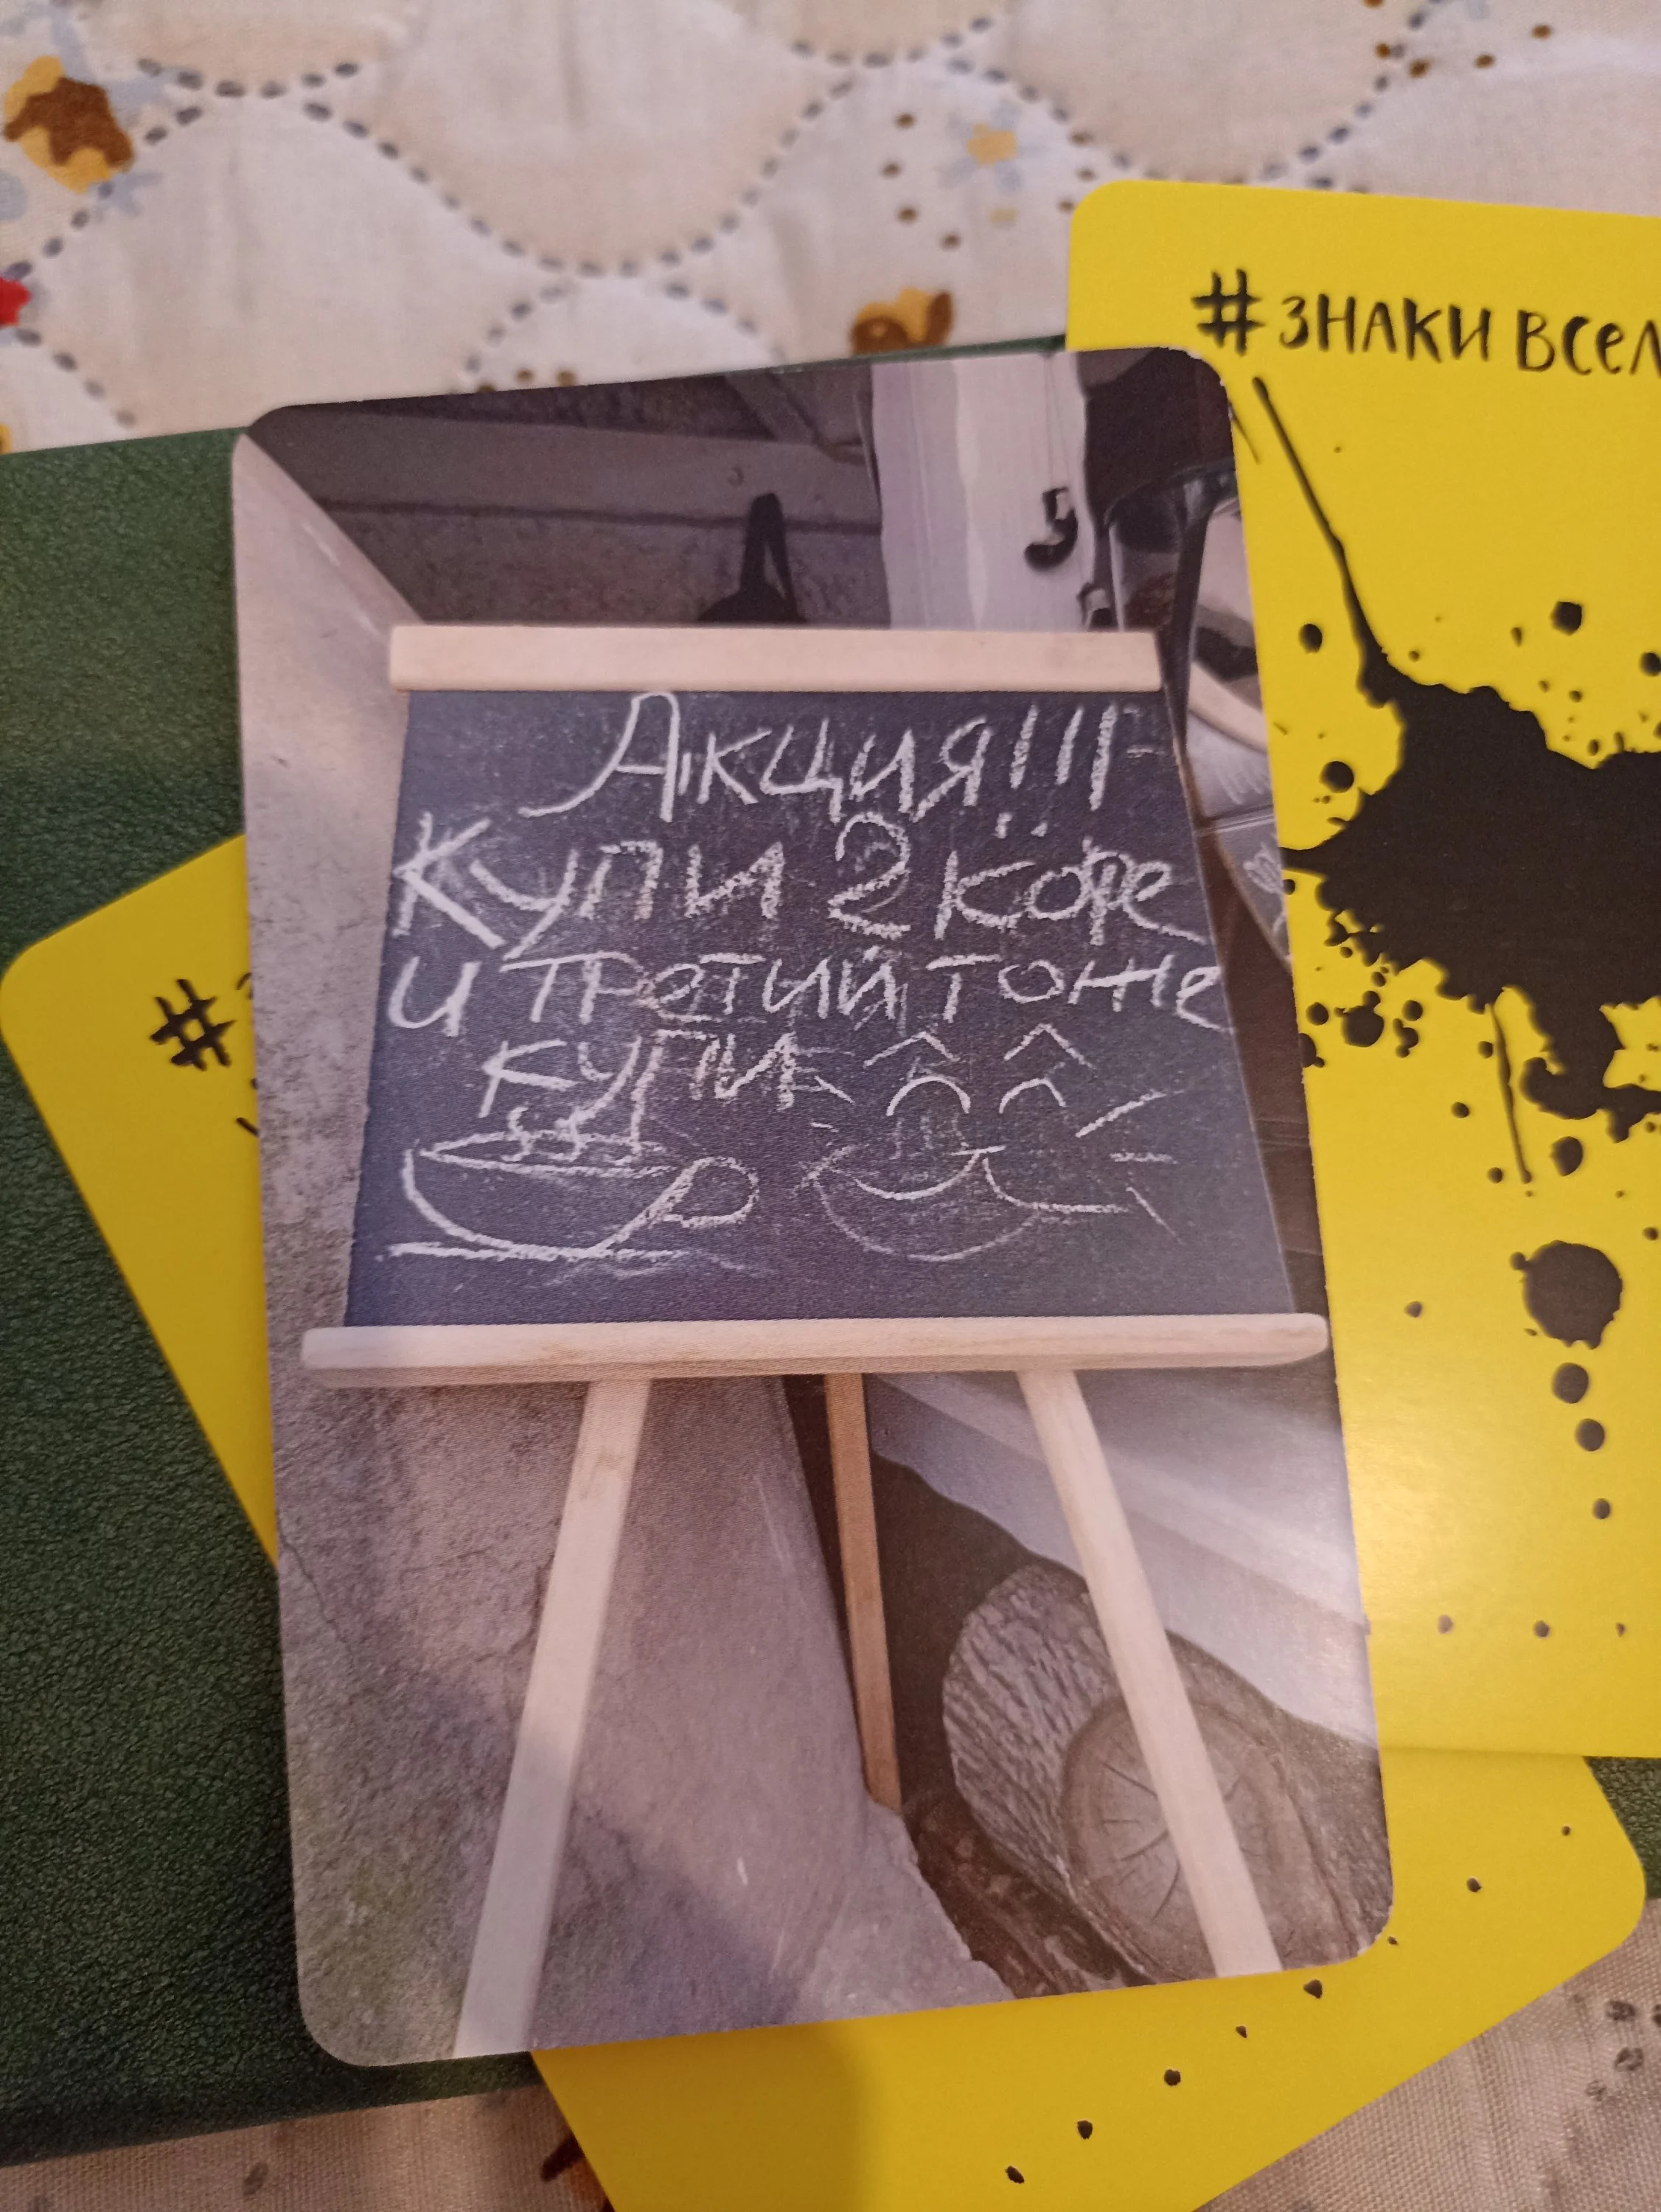 #ЗНАКИ ВСЕЛ
Акция!!!
Купи 2 кофе
и третий тоже
купи
#З